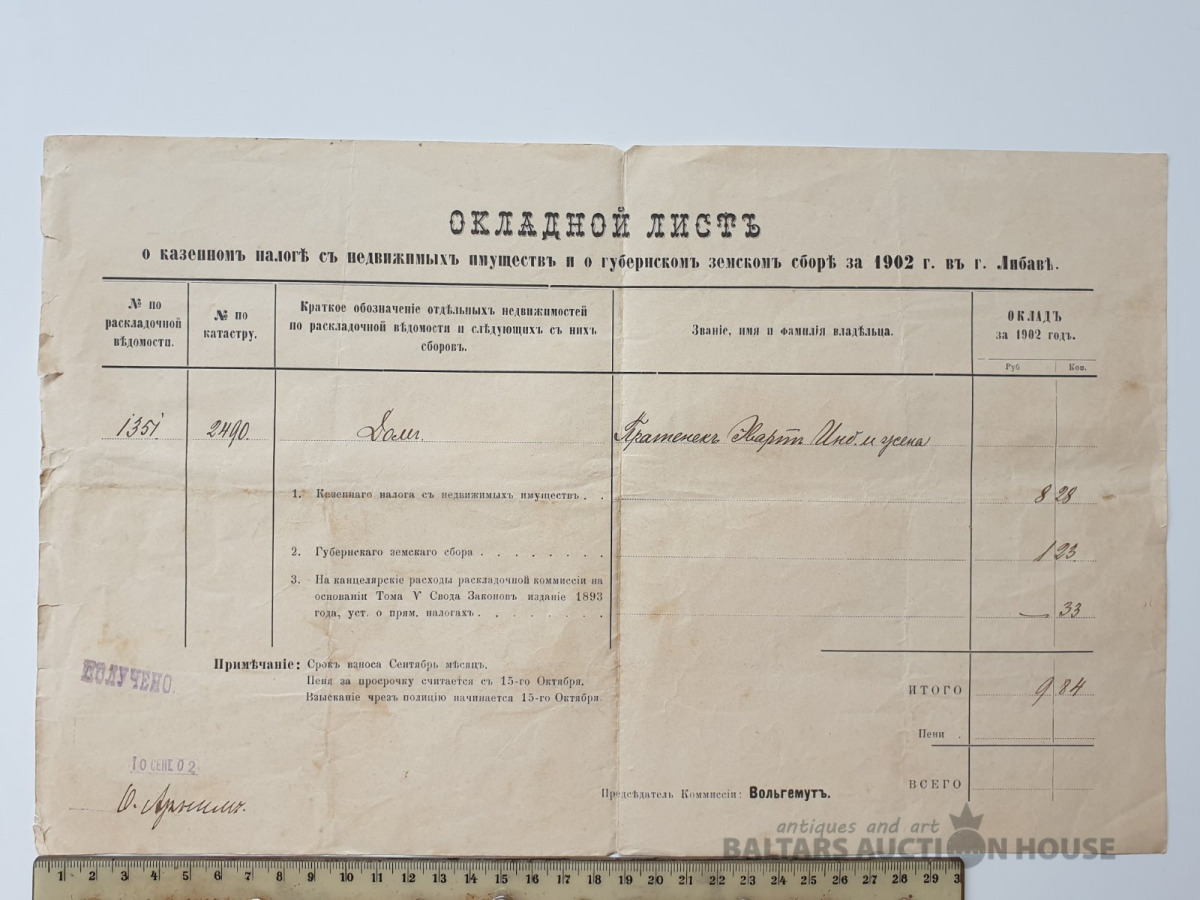 ОКЛАДНОЙ ЛИСТЪ
о казенномъ налогѣ съ недвижимыхъ имуществъ и о губернскомъ земскомъ сборѣ за 1902 г. въ г. Либавѣ.
№ по
раскладочной
вѣдомости.
№ по
катастру.
Краткое обозначеніе отдѣльныхъ недвижимостей
по раскладочной вѣдомости и слѣдующихъ съ нихъ
сборовъ.
Званіе, имя и фамилія владѣльца.
ОКЛАДЪ
за 1902 годъ.
Руб
Коп.
1351 2490 Домъ.
1. Казеннаго налога съ недвижимыхъ имуществъ . . 8 28
2. Губернскаго земскаго сбора . . . . . . . . 1 23
3. На канцелярскіе расходы раскладочной коммиссіи на
основаніи Тома V Свода Законовъ изданіе 1893
года, уст. о прям. налогахъ . . . . . . . . — 33
Примѣчаніе: Срокъ взноса Сентябрь мѣсяцъ.
Пеня за просрочку считается съ 15-го Октября.
Взысканіе чрезъ полицію начинается 15-го Октября
ПОЛУЧЕНО.
ИТОГО 9 84
Пени .
ВСЕГО
10 СЕНТ. 02
Предсѣдатель Коммиссіи: Вольгемутъ.
antiques and art
BALTARS AUCTION HOUSE
1 2 3 4 5 6 7 8 9 10 11 12 13 14 15 16 17 18 19 20 21 22 23 24 25 26 27 28 29 3